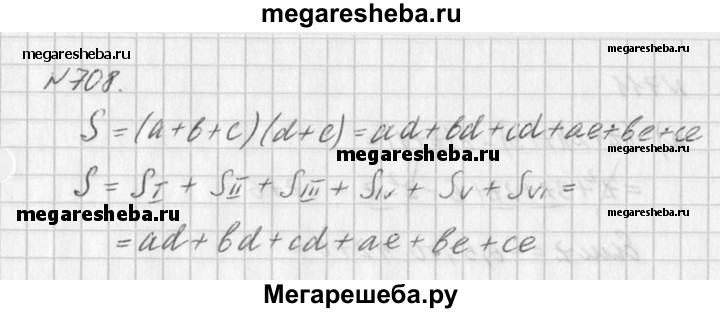 megaresheba.ru
megaresheba.ru
megaresheba.ru
№708.
S = (a+b+c)(d+e) = ad+bd+cd+ae+be+ce
megaresheba.ru
S = S_I + S_II + S_III + S_IV + S_V + S_VI =
megaresheba.ru
= ad+bd+cd+ae+be+ce
Мегарешеба.ру